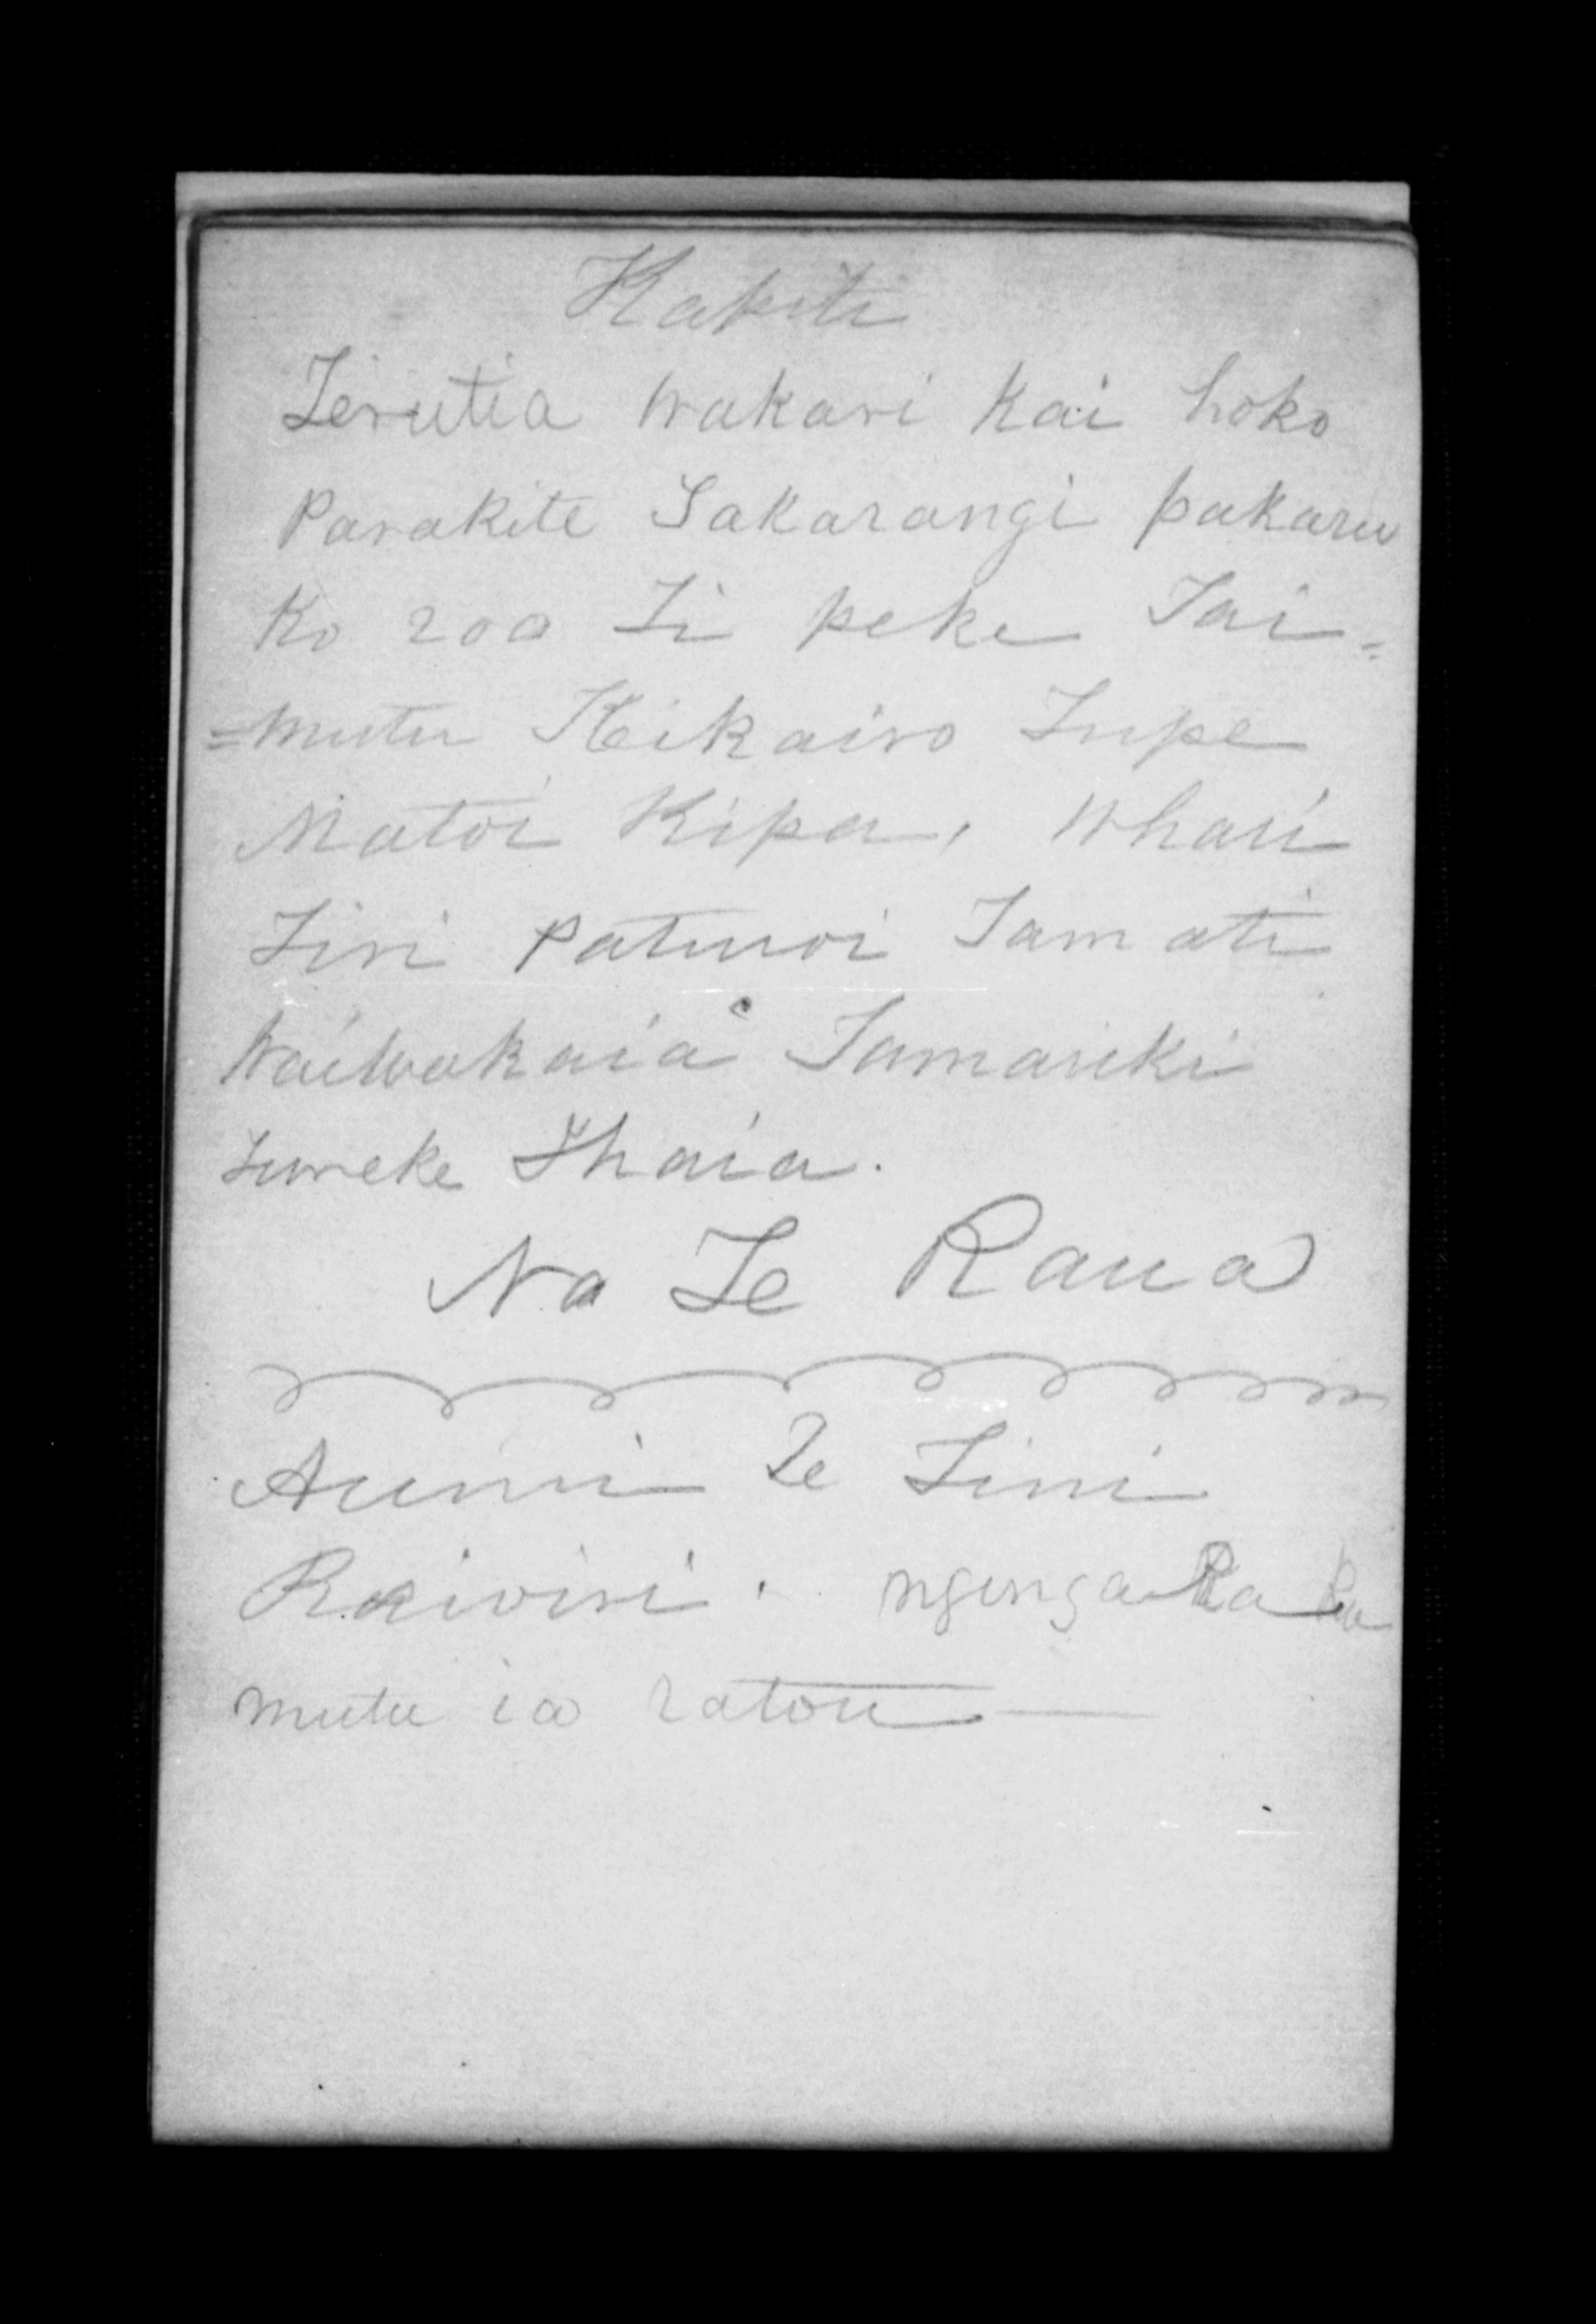 Kakiti
Terutia Wakari Kai hoko
Parakite Takarangi pakaru
Ko roa Ti peke Tai=
=mutu Keikairo Tupe
Matoi Kipa, Whari
Tiri Patuoi Tamati
Waiwakaia Tamariki
tureke Ihaia.
Na Te Raua
Te Tini
Rriwiri. ngenga Ra
mutu ia ratou